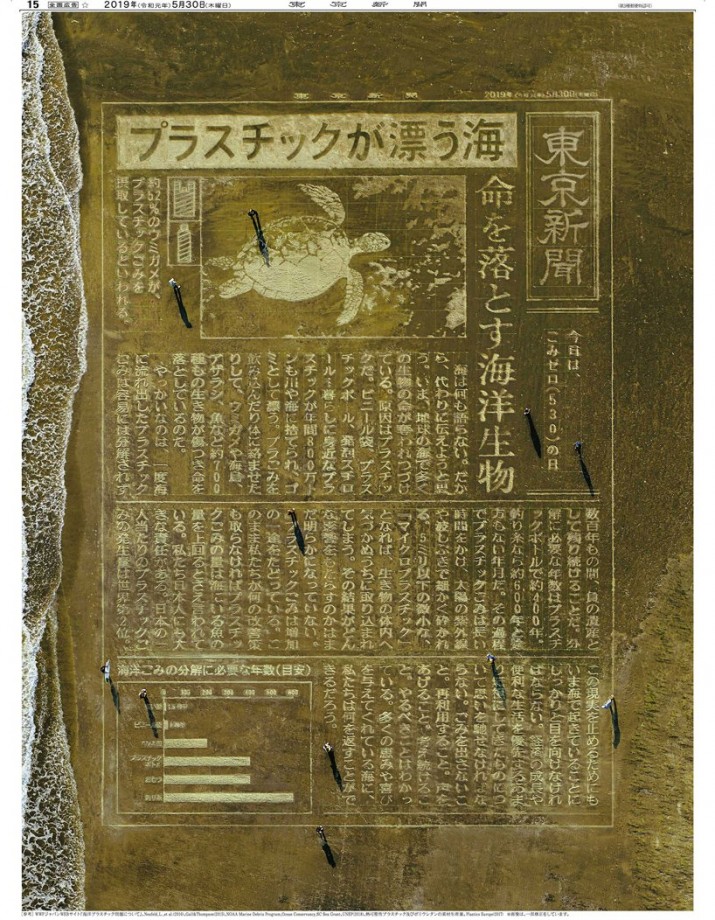 15 全面広告 ☆ 2019年(令和元年)5月30日(木曜日) 東京新聞
東京新聞 2019年(令和元年)5月30日(木曜日)
東京新聞
今日は、
ごみゼロ(530)の日
プラスチックが漂う海
命を落とす海洋生物
約52%のウミガメが、
プラスチックごみを
摂取しているといわれる。
海は何も語らない。だか
ら、代わりに伝えようと思
う。いま、地球の海で多く
の生物の命が奪われつづけ
ている。原因はプラスチッ
クだ。ビニール袋、プラス
チックボトル、発泡スチロ
ール…暮らしに身近なプラ
スチックが年間800万ト
ンも川や海に捨てられ、ゴ
ミとして漂う。プラごみを
飲み込んだり体に絡ませた
りして、ウミガメや海鳥、
アザラシ、魚など約700
種もの生き物が傷つき命を
落としているのだ。
やっかいなのは、一度海
に流れ出したプラスチック
ごみは容易には分解されず、
数百年もの間、負の遺産と
して残り続けることだ。分
解に必要な年数はプラスチ
ックボトルで約400年。
釣り糸なら約600年と途
方もない年月だ。その過程
でプラスチックごみは長い
時間をかけ、太陽の紫外線
や波しぶきで細かく砕かれ
る。5ミリ以下の微小な、
「マイクロプラスチック」
となれば、生き物の体内へ
気づかぬうちに取り込まれ
てしまう。その結果がどん
な影響をもたらすのかはま
だ明らかになっていない。
プラスチックごみは増加
の一途をたどっている。こ
のまま私たちが何の改善策
も取らなければプラスチッ
クごみの量は海にいる魚の
量を上回るとさえ言われて
いる。私たち日本人にも大
きな責任がある。日本の一
人当たりのプラスチックご
みの発生量は世界第2位。
この現実を止めるためにも
いま海で起きていることに
しっかりと目を向けなけれ
ばならない。経済の成長や
便利な生活を優先するあま
り、犠牲にしてきたものにつ
いて思いを馳せなければな
らない。ごみを出さないこ
と。再利用すること。声を
あげること。考え続けるこ
と。やるべきことはわかっ
ている。多くの恵みや喜び
を与えてくれている海に、
私たちは何を返すことがで
きるだろう。
海洋ごみの分解に必要な年数(目安)
0 100 200 300 400 500 600